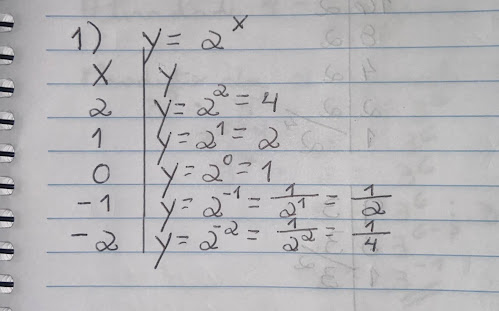 1) y = 2^x
x | y
2 | y = 2^2 = 4
1 | y = 2^1 = 2
0 | y = 2^0 = 1
-1 | y = 2^-1 = 1/2^1 = 1/2
-2 | y = 2^-2 = 1/2^2 = 1/4